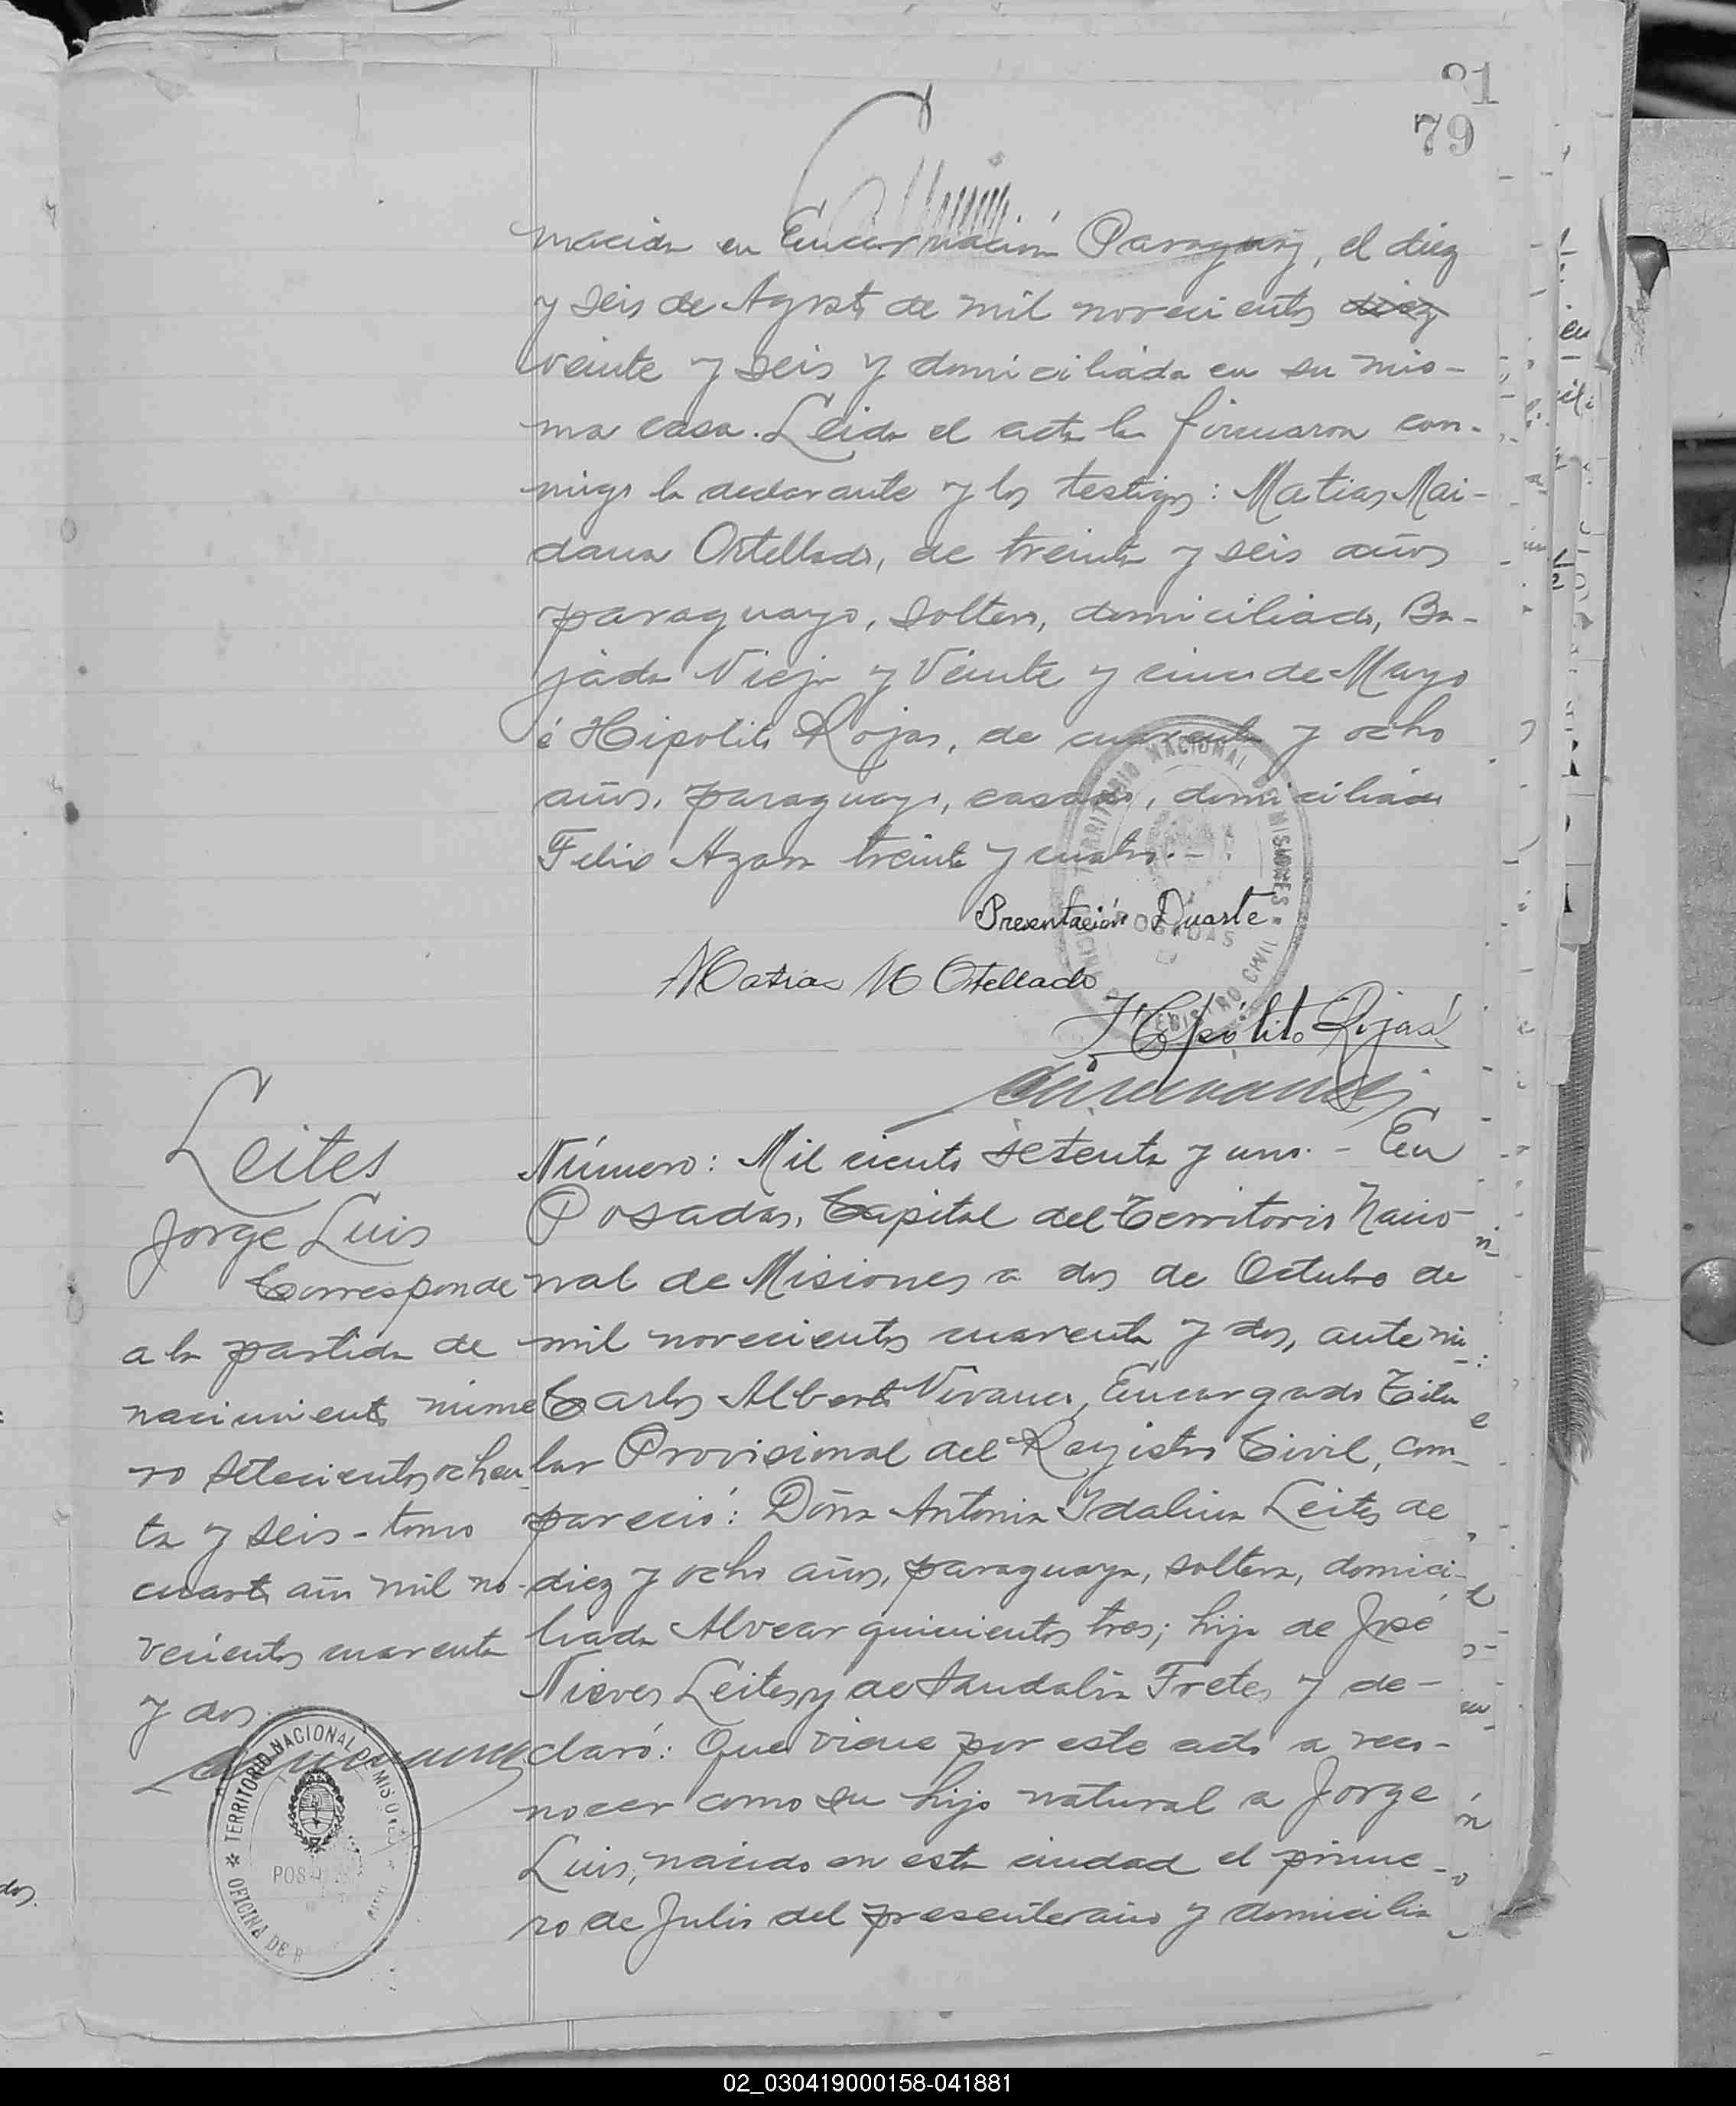 81
79
nacida en Encarnación Paraguay, el diez
y seis de Agosto de mil novecientos diez
veinte y seis y domiciliada en su mis-
ma casa. Leida el acta la firmaron con-
migo la declarante y los testigos: Matias Mai-
dana Ortellado, de treinta y seis años
paraguayo, soltero, domiciliado, Ba-
jada Vieja y Veinte y cinco de Mayo
é Hipolito Rojas, de cuarenta y ocho
años, paraguayo, casado, domiciliado
Felix Azara treinta y cuatro.-
Presentación Duarte
Matias M Ortellado
Hipólito Rojas
TERRITORIO NACIONAL DE MISIONES
POSADAS
REGISTRO CIVIL
Leites
Jorge Luis
Corresponde
a la partida de
nacimiento nume
ro setecientos ochen
ta y seis - tomo
cuarto año mil no-
vecientos cuarenta
y dos.
TERRITORIO NACIONAL DE MISIONES
OFICINA DE R
Número: Mil ciento setenta y uno. - En
Posadas, Capital del Territorio Nacio-
nal de Misiones a dos de Octubre de
mil novecientos cuarenta y dos, ante mi
Carlos Alberto Vivanco, Encargado Titu
lar Provisional del Registro Civil, com-
pareció: Doña Antonia Idalina Leites de
diez y ocho años, paraguaya, soltera, domici-
liada Alvear quinientos tres; hija de José
Nieves Leites y de Fretes y de-
claró: Que viene por este acto a reco-
nocer como su hijo natural a Jorge
Luis, nacido en esta ciudad el prime-
ro de Julio del presente año y domicilia
02_030419000158-041881